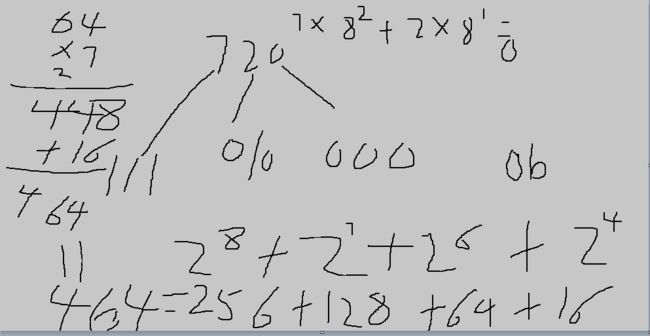 64
×7
2
448
+16
464
11
7×8²+2×8¹=
0
720
111 010 000 0b
2⁸+2⁷+2⁶+2⁴
464=256+128+64+16